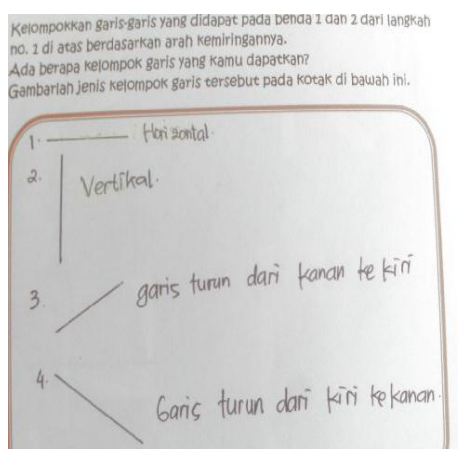 Kelompokkan garis-garis yang didapat pada benda 1 dan 2 dari langkah
no. 1 di atas berdasarkan arah kemiringannya.
Ada berapa kelompok garis yang kamu dapatkan?
Gambarlah jenis kelompok garis tersebut pada kotak di bawah ini.
1. Horizontal.
2. Vertikal.
3. garis turun dari kanan ke kiri
4. Garis turun dari kiri ke kanan.